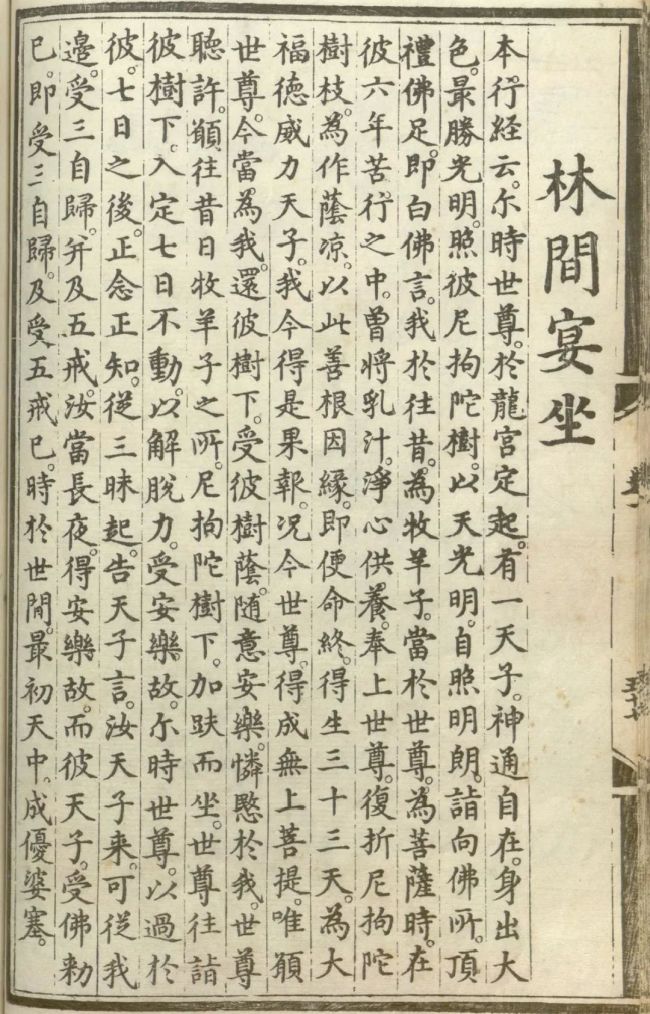 林間宴坐
本行経云。尓時世尊。於龍宮定起。有一天子。神通自在。身出大
色。最勝光明。照彼尼拘陀樹。以天光明。自照明朗。詣向佛所。頂
禮佛足。即白佛言。我於往昔。為牧羊子。當於世尊。為菩薩時。在
彼六年苦行之中。曽將乳汁。淨心供養。奉上世尊。復折尼拘陀
樹枝。為作蔭凉。以此善根因縁。即便命終。得生三十三天。為大
福德威力天子。我今得是果報。况今世尊。得成無上菩提。唯願
世尊。今當為我。還彼樹下。受彼樹蔭。随意安樂。憐愍於我。世尊
聴許。願往昔日牧羊子之所。尼拘陀樹下。加趺而坐。世尊往詣
彼樹下。入定七日不動。以解脫力。受安樂故。尓時世尊。以過於
彼。七日之後。正念正知。從三昧起。告天子言。汝天子来。可從我
邉。受三自歸。并及五戒。汝當長夜。得安樂故。而彼天子。受佛勑
已。即受三自歸。及受五戒已。時於世間。最初天中。成優婆塞。